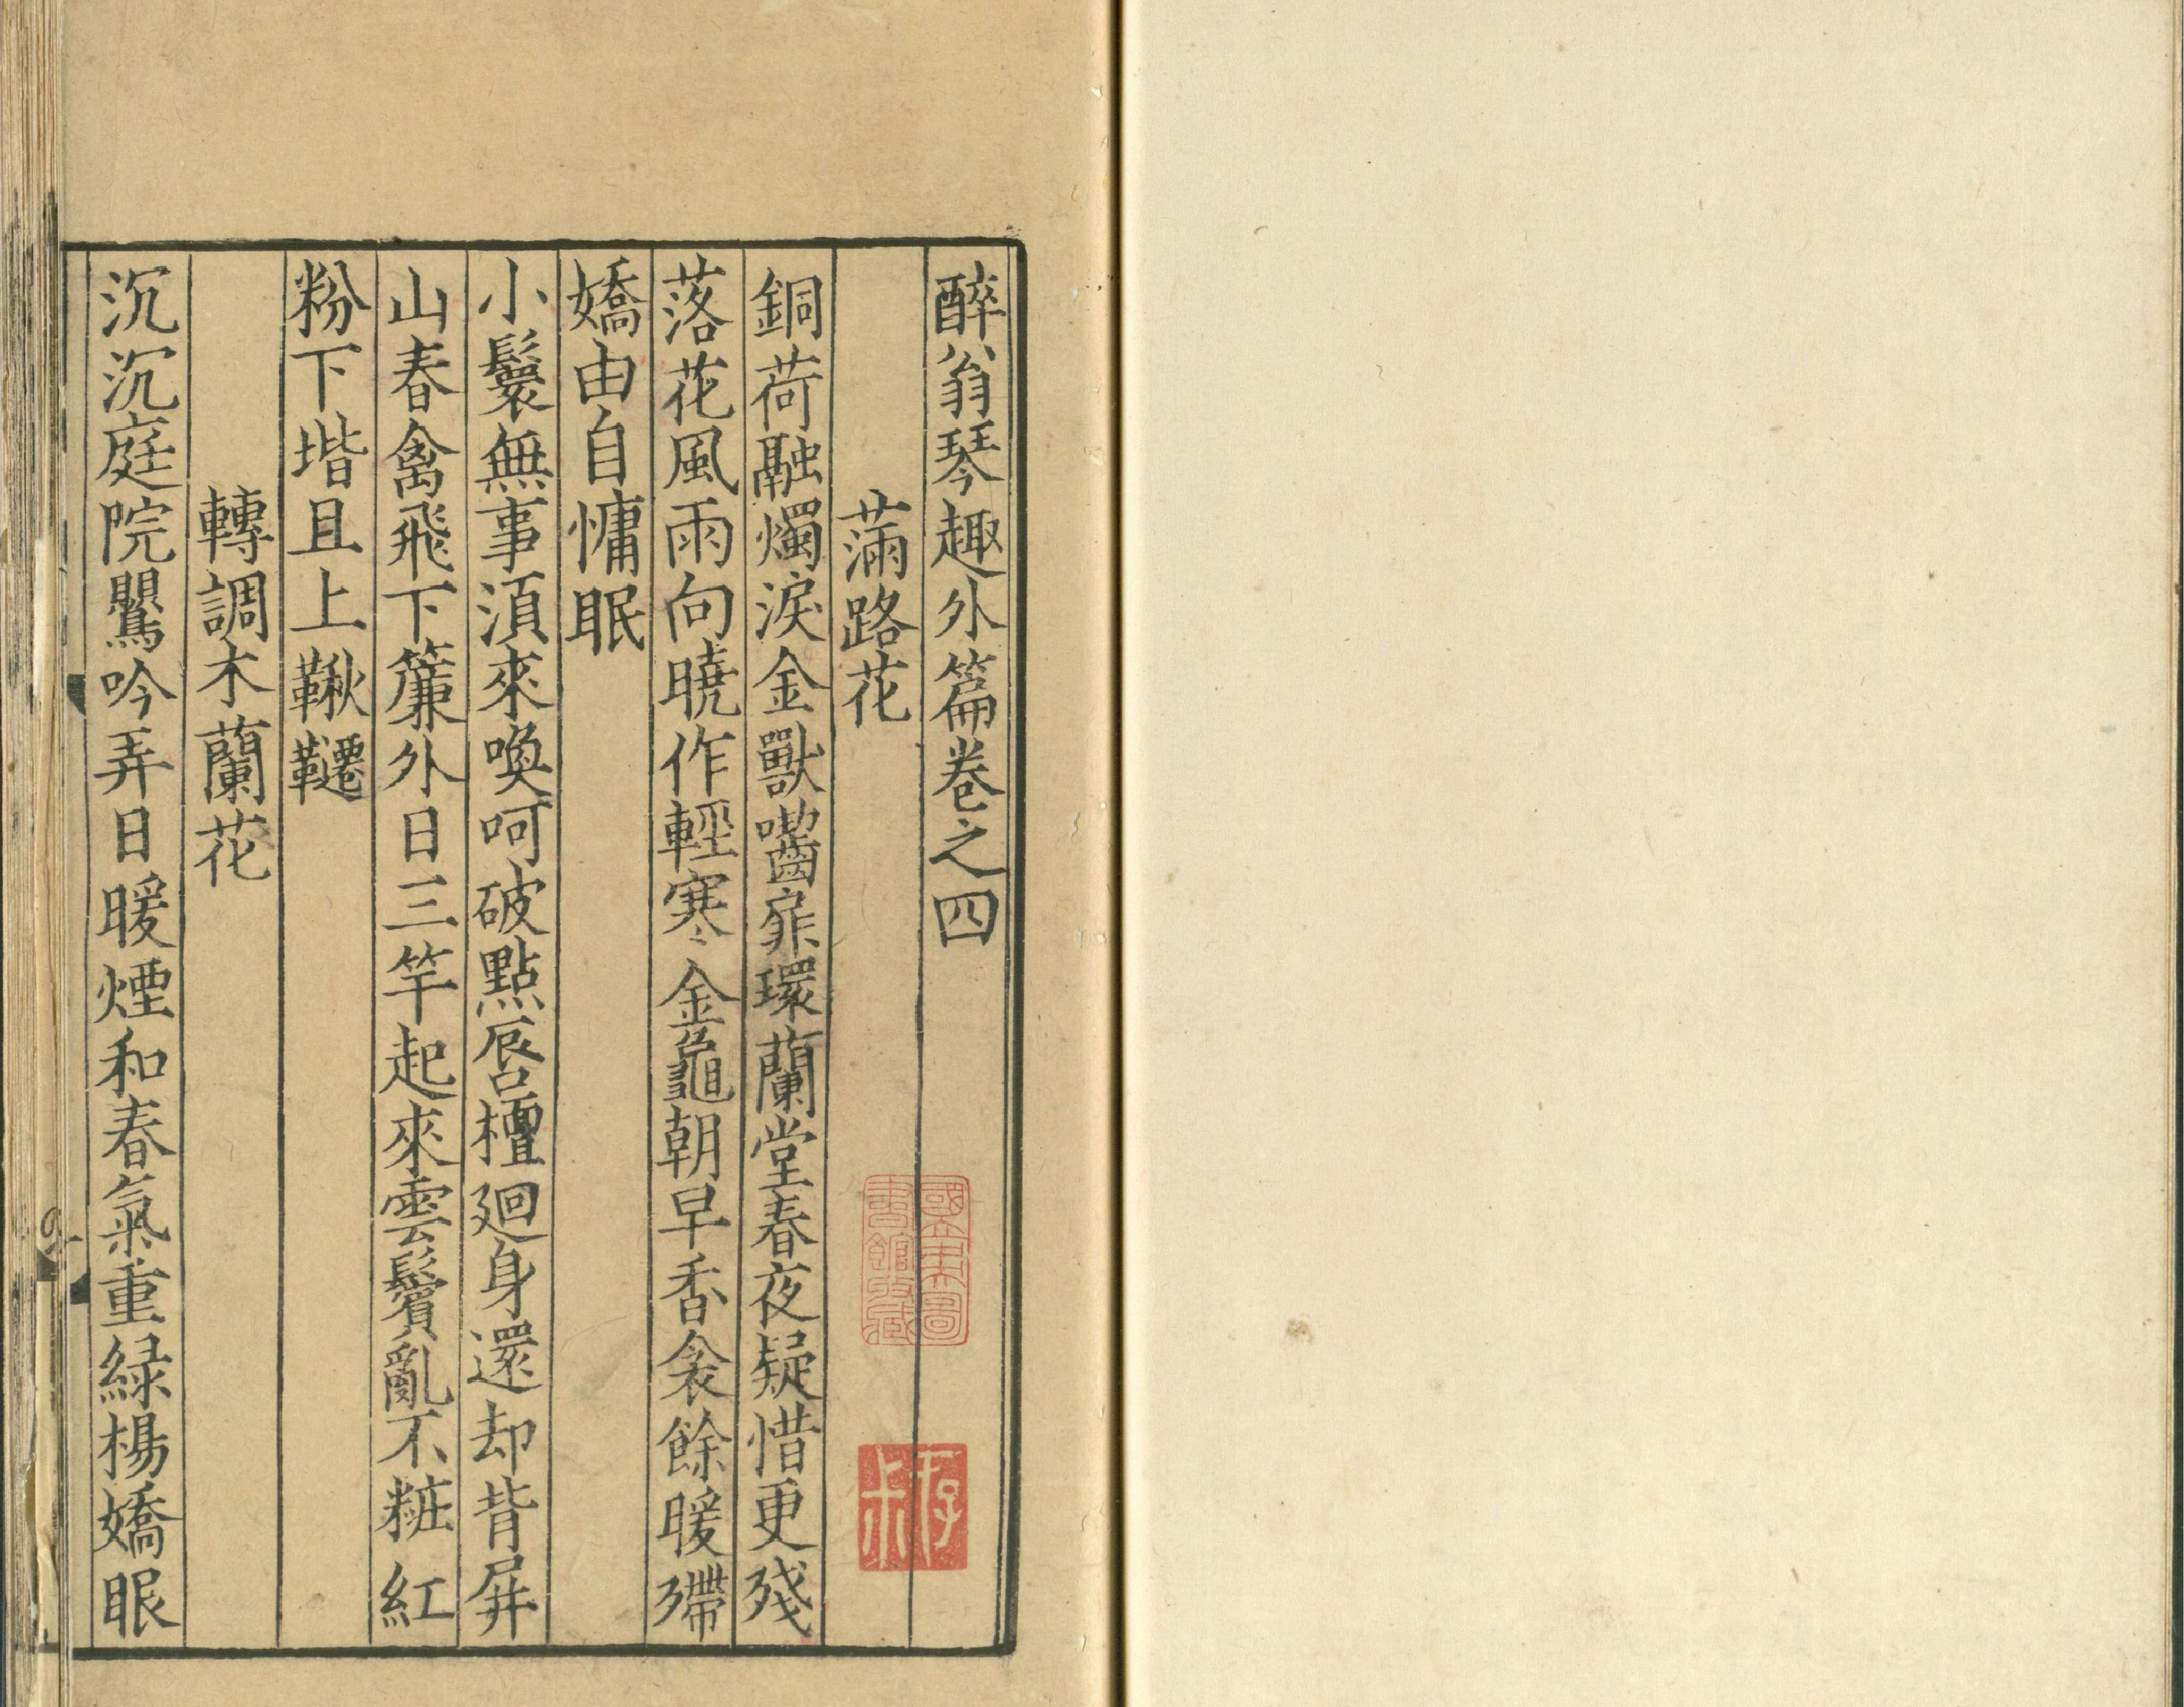 醉翁琴趣外篇卷之四
滿路花
銅荷融燭淚金獸嚙扉環蘭堂春夜疑惜更殘
落花風雨向曉作輕寒金龜朝早香衾餘暖殢
嬌由自慵眠
小鬟無事須來喚呵破點唇檀廻身還却背屏
山春禽飛下簾外日三竿起來雲鬢亂不粧紅
粉下堦且上鞦韆
轉調木蘭花
沉沉庭院鸎吟弄日暖煙和春氣重緑楊嬌眼
國立中央圖
書館收藏